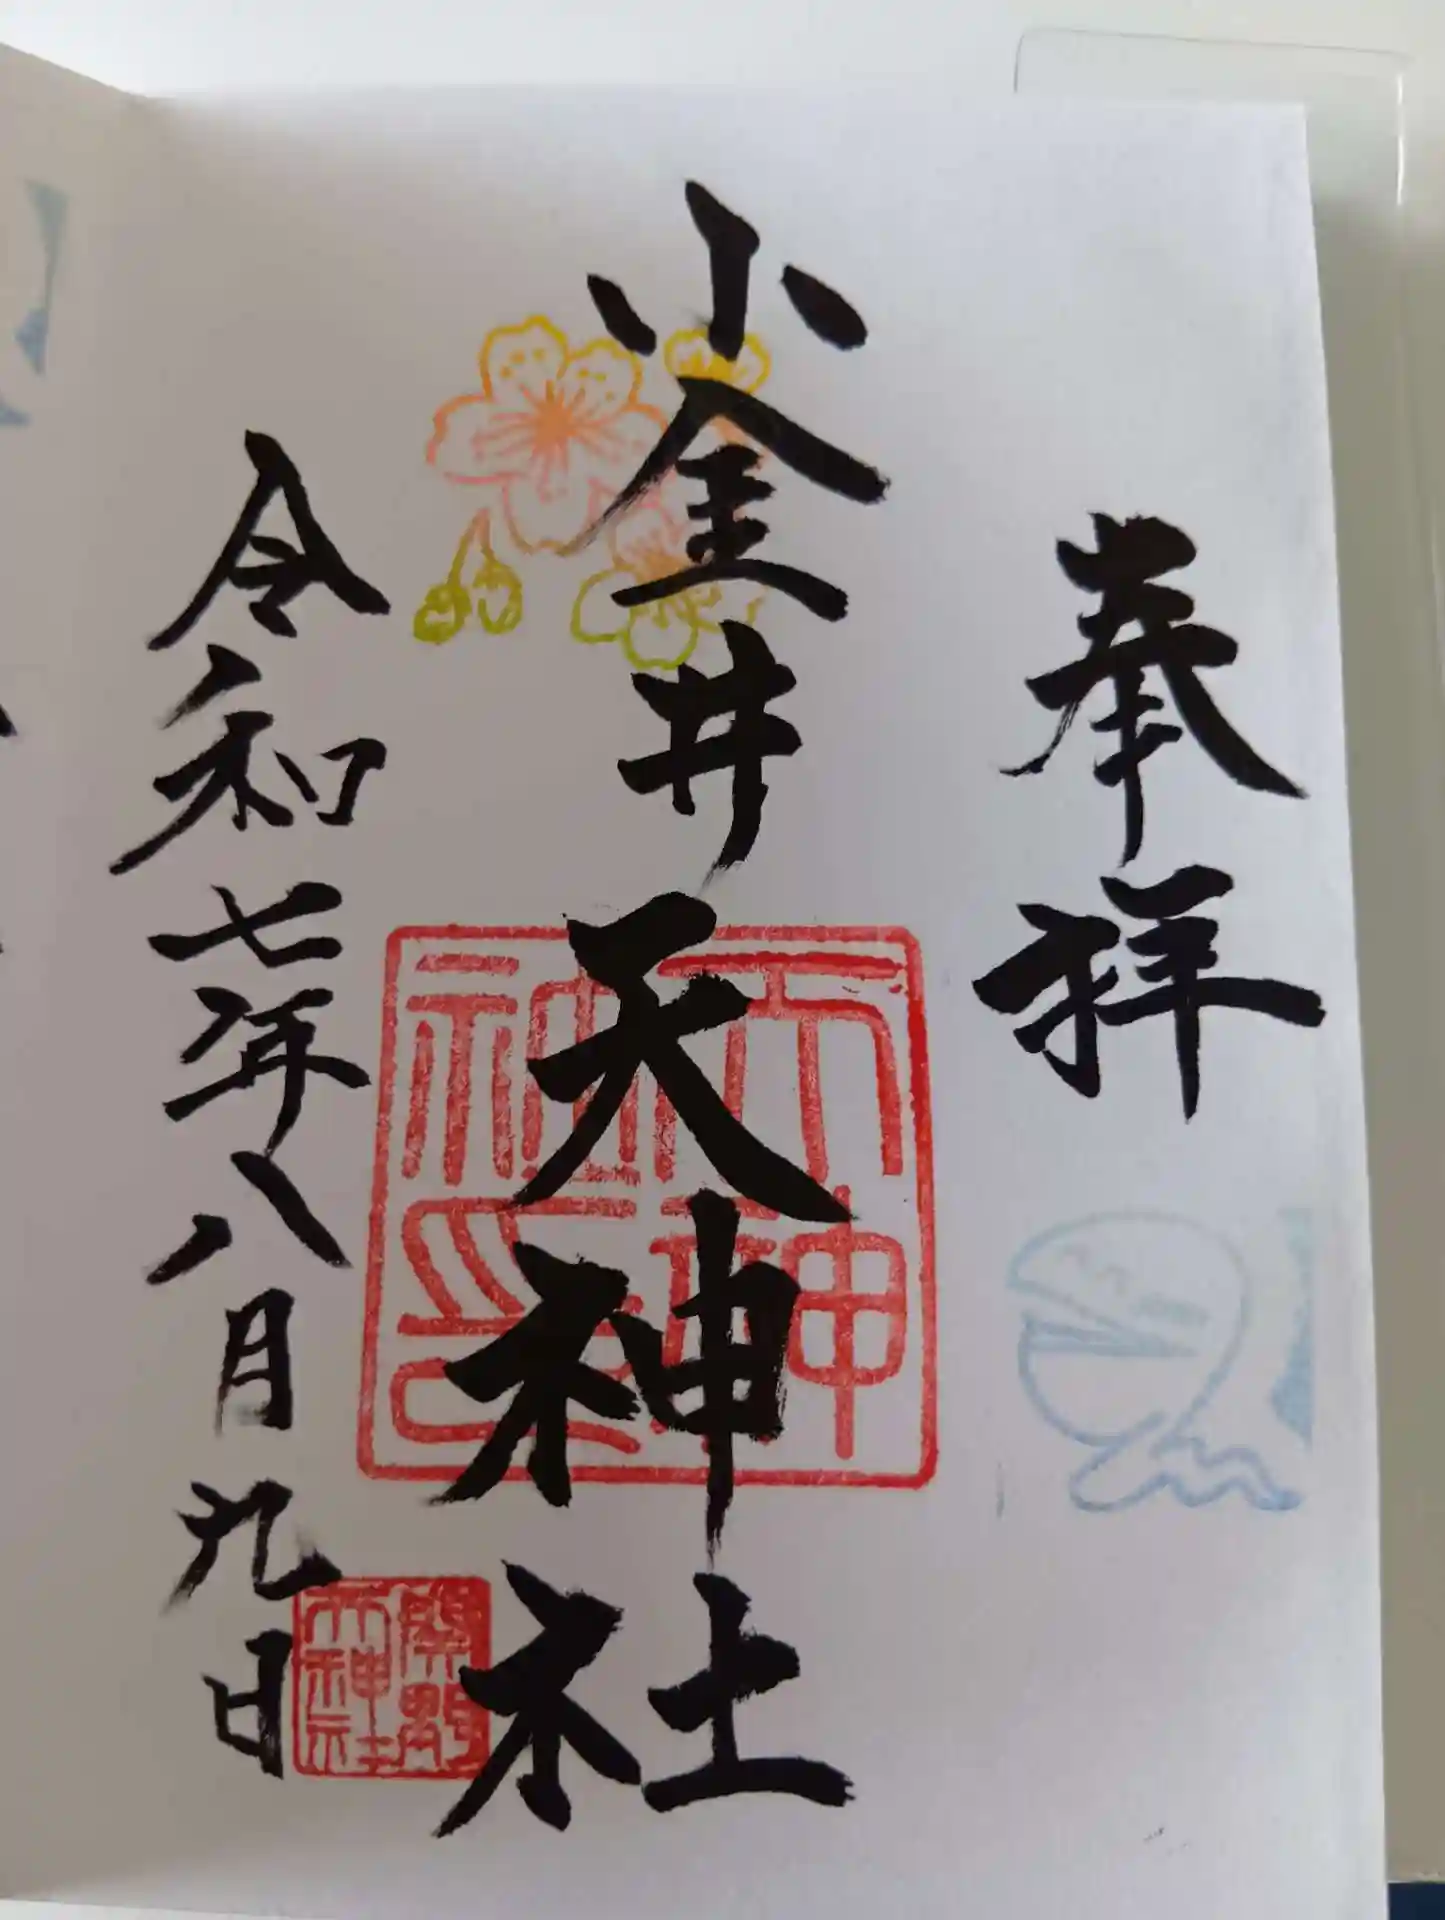 奉拝
小金井天神社
令和七年八月九日
天神社印
関野天神社